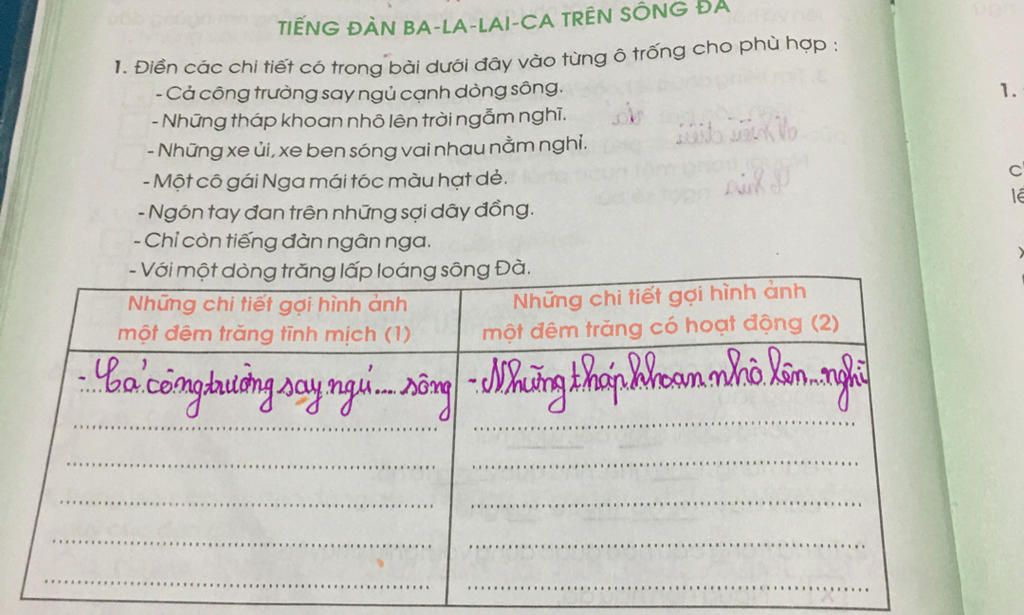 TIẾNG ĐÀN BA-LA-LAI-CA TRÊN SÔNG ĐÀ
1. Điền các chi tiết có trong bài dưới đây vào từng ô trống cho phù hợp :
- Cả công trường say ngủ cạnh dòng sông.
- Những tháp khoan nhô lên trời ngẫm nghĩ.
- Những xe ủi, xe ben sóng vai nhau nằm nghỉ.
- Một cô gái Nga mái tóc màu hạt dẻ.
- Ngón tay đan trên những sợi dây đồng.
- Chỉ còn tiếng đàn ngân nga.
- Với một dòng trăng lấp loáng sông Đà.
Những chi tiết gợi hình ảnh
một đêm trăng tĩnh mịch (1)
Những chi tiết gợi hình ảnh
một đêm trăng có hoạt động (2)
- Cả công trường say ngủ.... sông
- Những tháp khoan nhô lên... nghĩ
1.